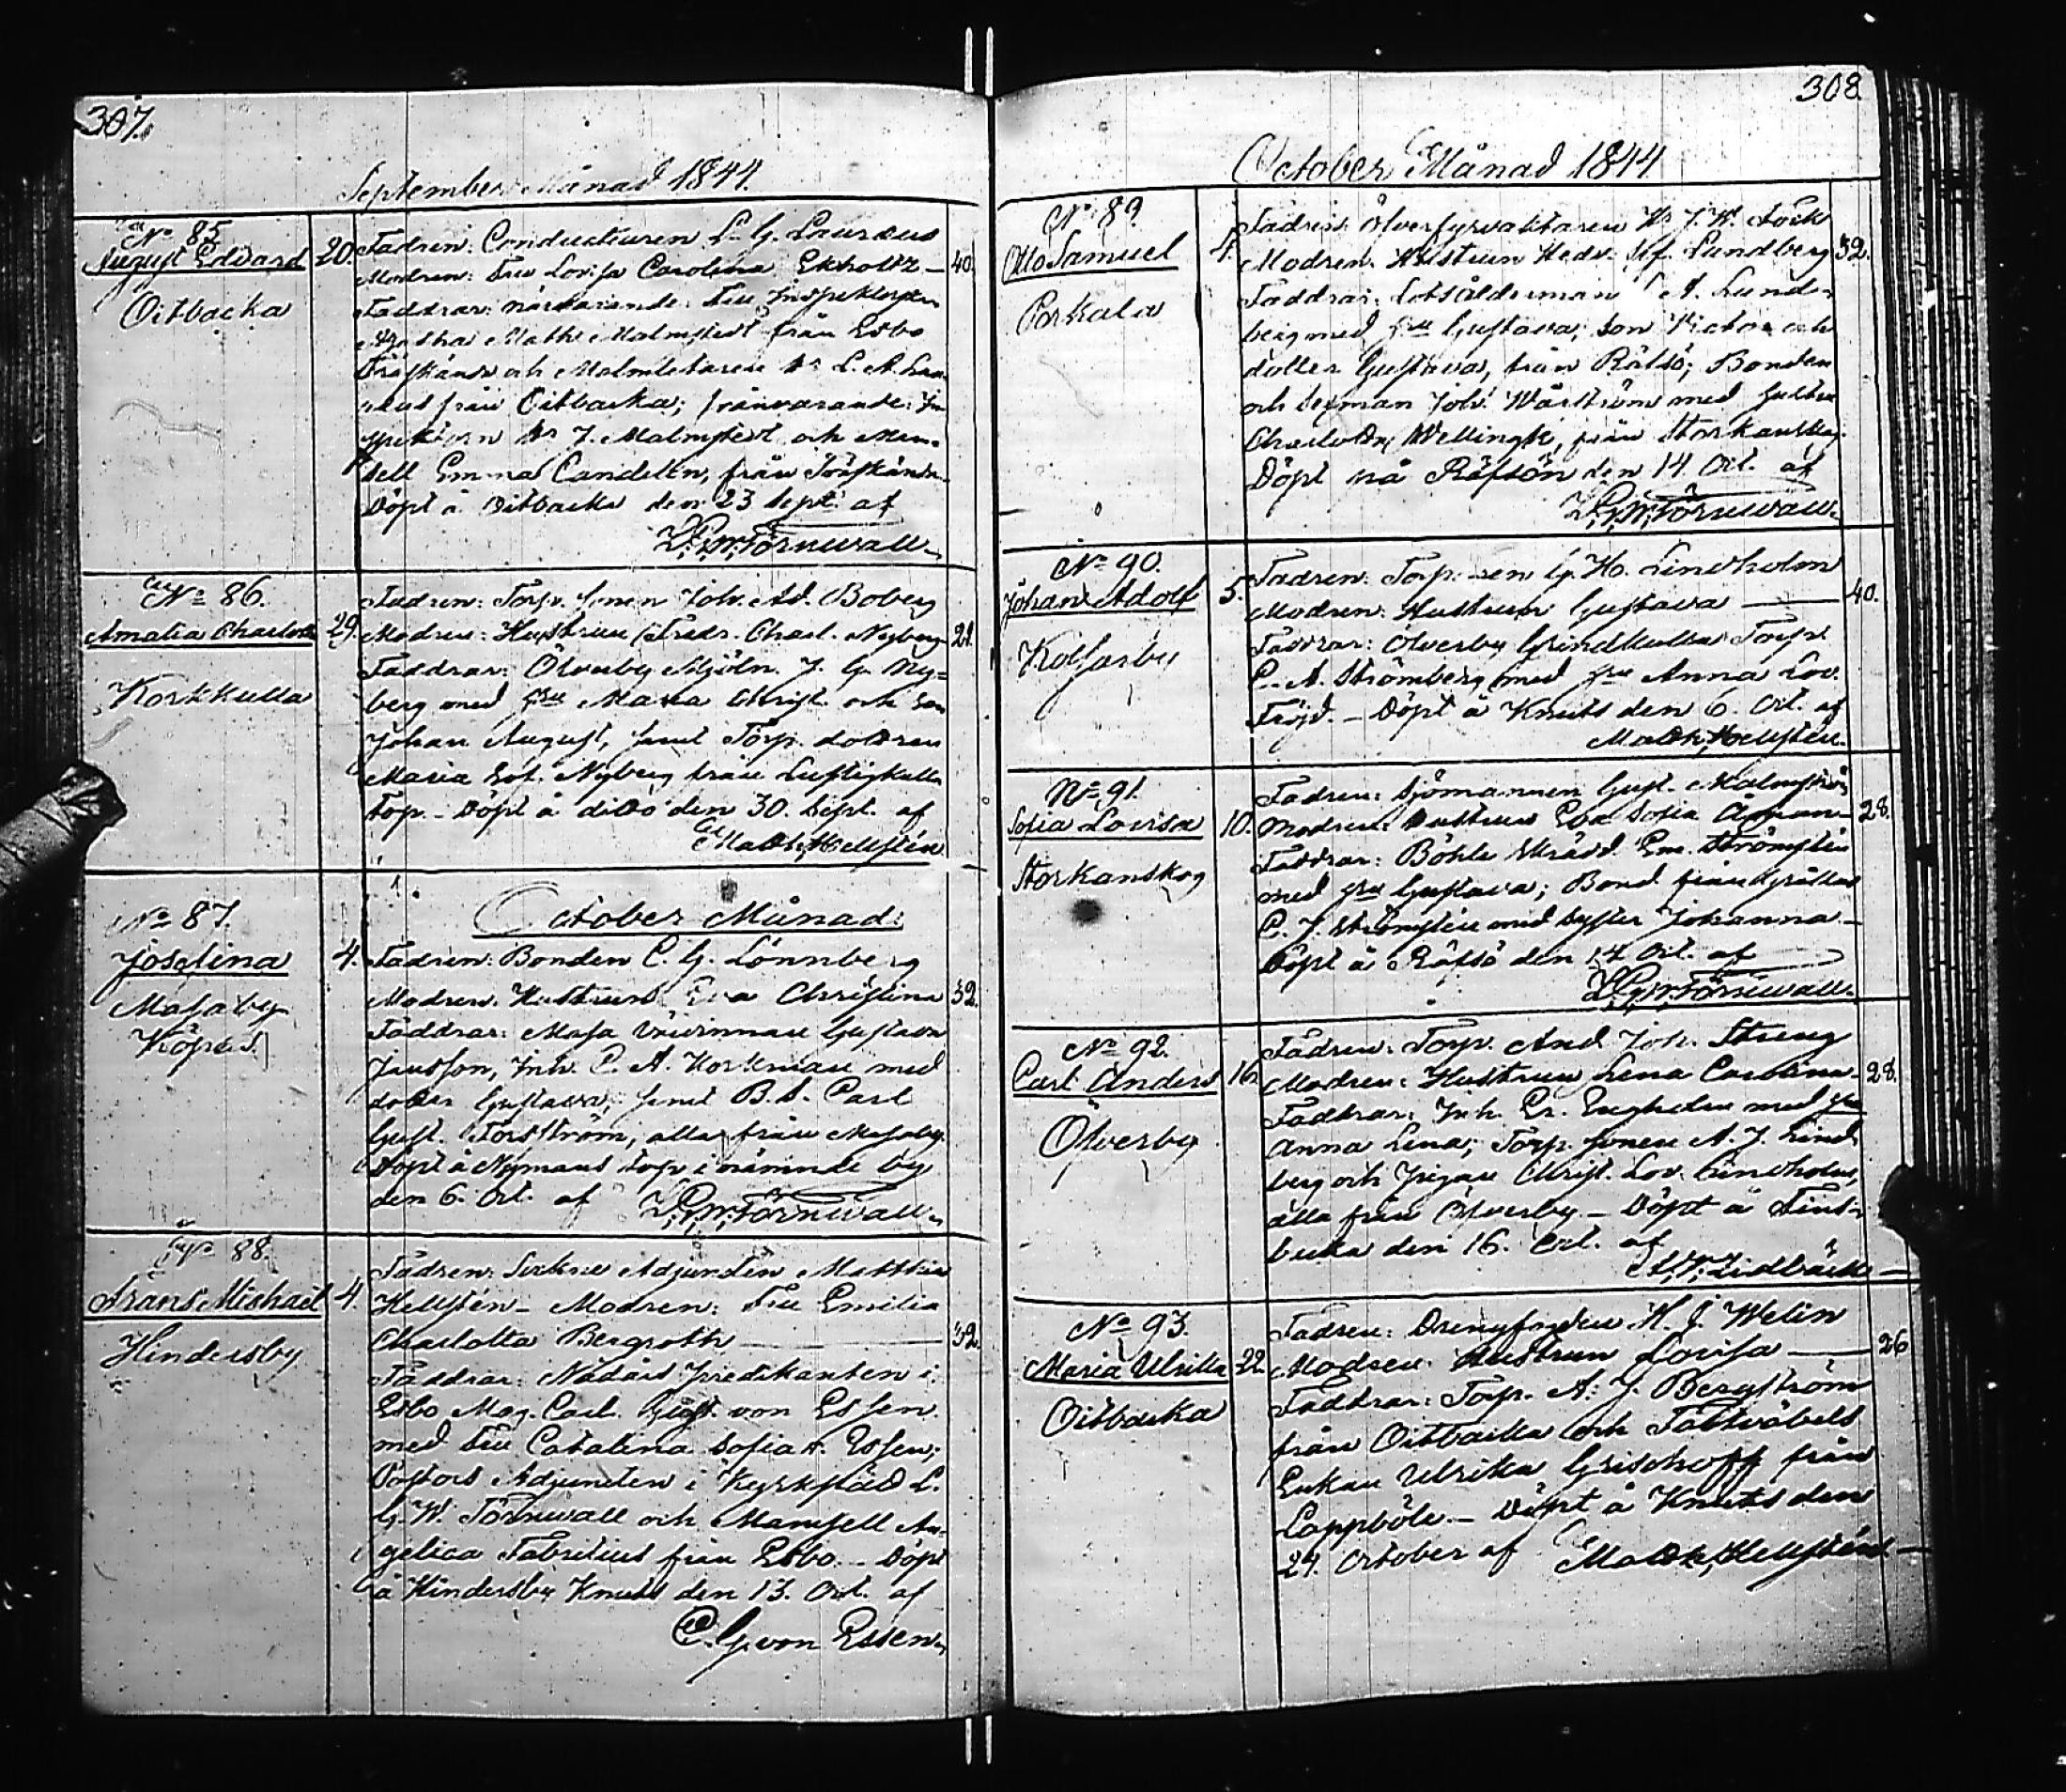 307.
September Månad 1844.
No 85.
August Edvard
Oitbacka
20.
Fadren: Conducteuren L. G. Lauræus
Modren: Fru Lovisa Carolina Ekholtz —
40.
Faddrar: närvarande: Fru Inspektorskan
Agatha Math. Malmstedt från Esbo
Träskända och Malmletaren Hr L. A. Lau-
ræus från Oitbacka; frånvarande: In-
spektorn Hr J. Malmstedt och Mam-
sell Emma Candelin, från Träskända.
Döpt å Oitbacka den 23 Sept. af
L. G. W. Törnwall.
No 86.
Amalia Charlotta
Korkkulla
29.
Fadren: Torp. sonen Joh. Ad. Boberg
Modren: Hustrun Fredr. Charl. Nyberg
21.
Faddrar: Öfverby Mjöln. J. G. Ny-
berg med hru Maria Christ. och son
Johan August, samt Torp. dottren
Maria Sof. Nyberg från Lustigkulla
torp. Döpt å dito den 30. Sept. af
Math. Hellstén
October Månad:
No 87.
Josefina
Masaby
4.
Fadren: Bonden C. G. Lönnberg
Modren. Hustrun Eva Christina
32.
Faddrar: Masa
Jansson, Inh. C. A. Korkman med
dotter Gustava; samt B. S. Carl
Gust. Forsström, alla från Masaby.
Döpt å Nymans torp i nämnde by
den 6. Oct. af L. G. W. Törnwall.
No 88.
Frans Mishael
Hindersby
4.
Fadren: Sockne Adjuncten Matthias
Hellstén — Modren: Fru Emilia
Charlotta Bergroth —
32.
Faddrar: Nådårs Predikanten i
Esbo Mag. Carl Gust. von Essen
med Fru Catalina Sofia v. Essen;
Pastors Adjuncten i Kyrkslätt L.
G. W. Törnwall och Mamsell An-
gelica Fabritius från Esbo. Döpt
å Hindersby Knuts den 13. Oct. af
C. G. von Essen.
308.
October Månad 1844
No 89.
Otto Samuel
Porkala
4.
Fadren: Öfverfyrvaktaren Hr J. W.
Modren. Hustrun Hedv. Ulf. Lundberg
32.
Faddrar: Lotsålderman A. Lund-
berg med hru Gustava; son Victor och
dotter Gustava, från Räfsö; Bonden
och sexman Joh. Wårström med hustru
Charlotta Wellingk, från Storkanskog.
Döpt på Räfsön den 14. Oct. af
L. G. W. Törnwall.
No 90.
Johan Adolf
Kolsarby
5.
Fadren: Torp. sen G. H. Lindholm
Modren: Hustrun Gustava —
40.
Faddrar: Öfverby Grindkulla Torp.
C. A. Strömberg med hru Anna Lov.
Fröjd. — Döpt å Knuts den 6. Oct. af
Math. Hellstén.
No 91.
Sofia Lovisa
Storkanskog
10.
Fadren: Sjömannen Gust. Malmström
Modren: Hustrun Eva Sofia
28.
Faddrar: Böhle Skrädd. Em. Strömstén
med hru Gustava; Bond. från
C. J. Strömstén med syster Johanna —
Döpt å Räfsö den 14. Oct. af
L. G. W. Törnwall.
No 92.
Carl Anders
Öfverby
16.
Fadren: Torp. And. Joh. Streng
Modren: Hustrun Lena Carolina
28.
Faddrar: Inh. Er. Engholm med hru
Anna Lena; Torp. sonen A. J. Lind-
berg och Pigan Christ. Lov. Lindholm,
alla från Öfverby — Döpt å
den 16. Oct. af
A. W. Lidbäck —
No 93.
Maria Ulrika
Oitbacka
22.
Fadren: Drengfogden H. J. Welin
Modren: Hustrun Lovisa —
26
Faddrar: Torp. A. J. Bergström
från Oitbacka och Fältväbels
Enkan Ulrika Grischoff från
Lappböle. — Döpt å Knuts den
27. October af Math. Hellstén. —